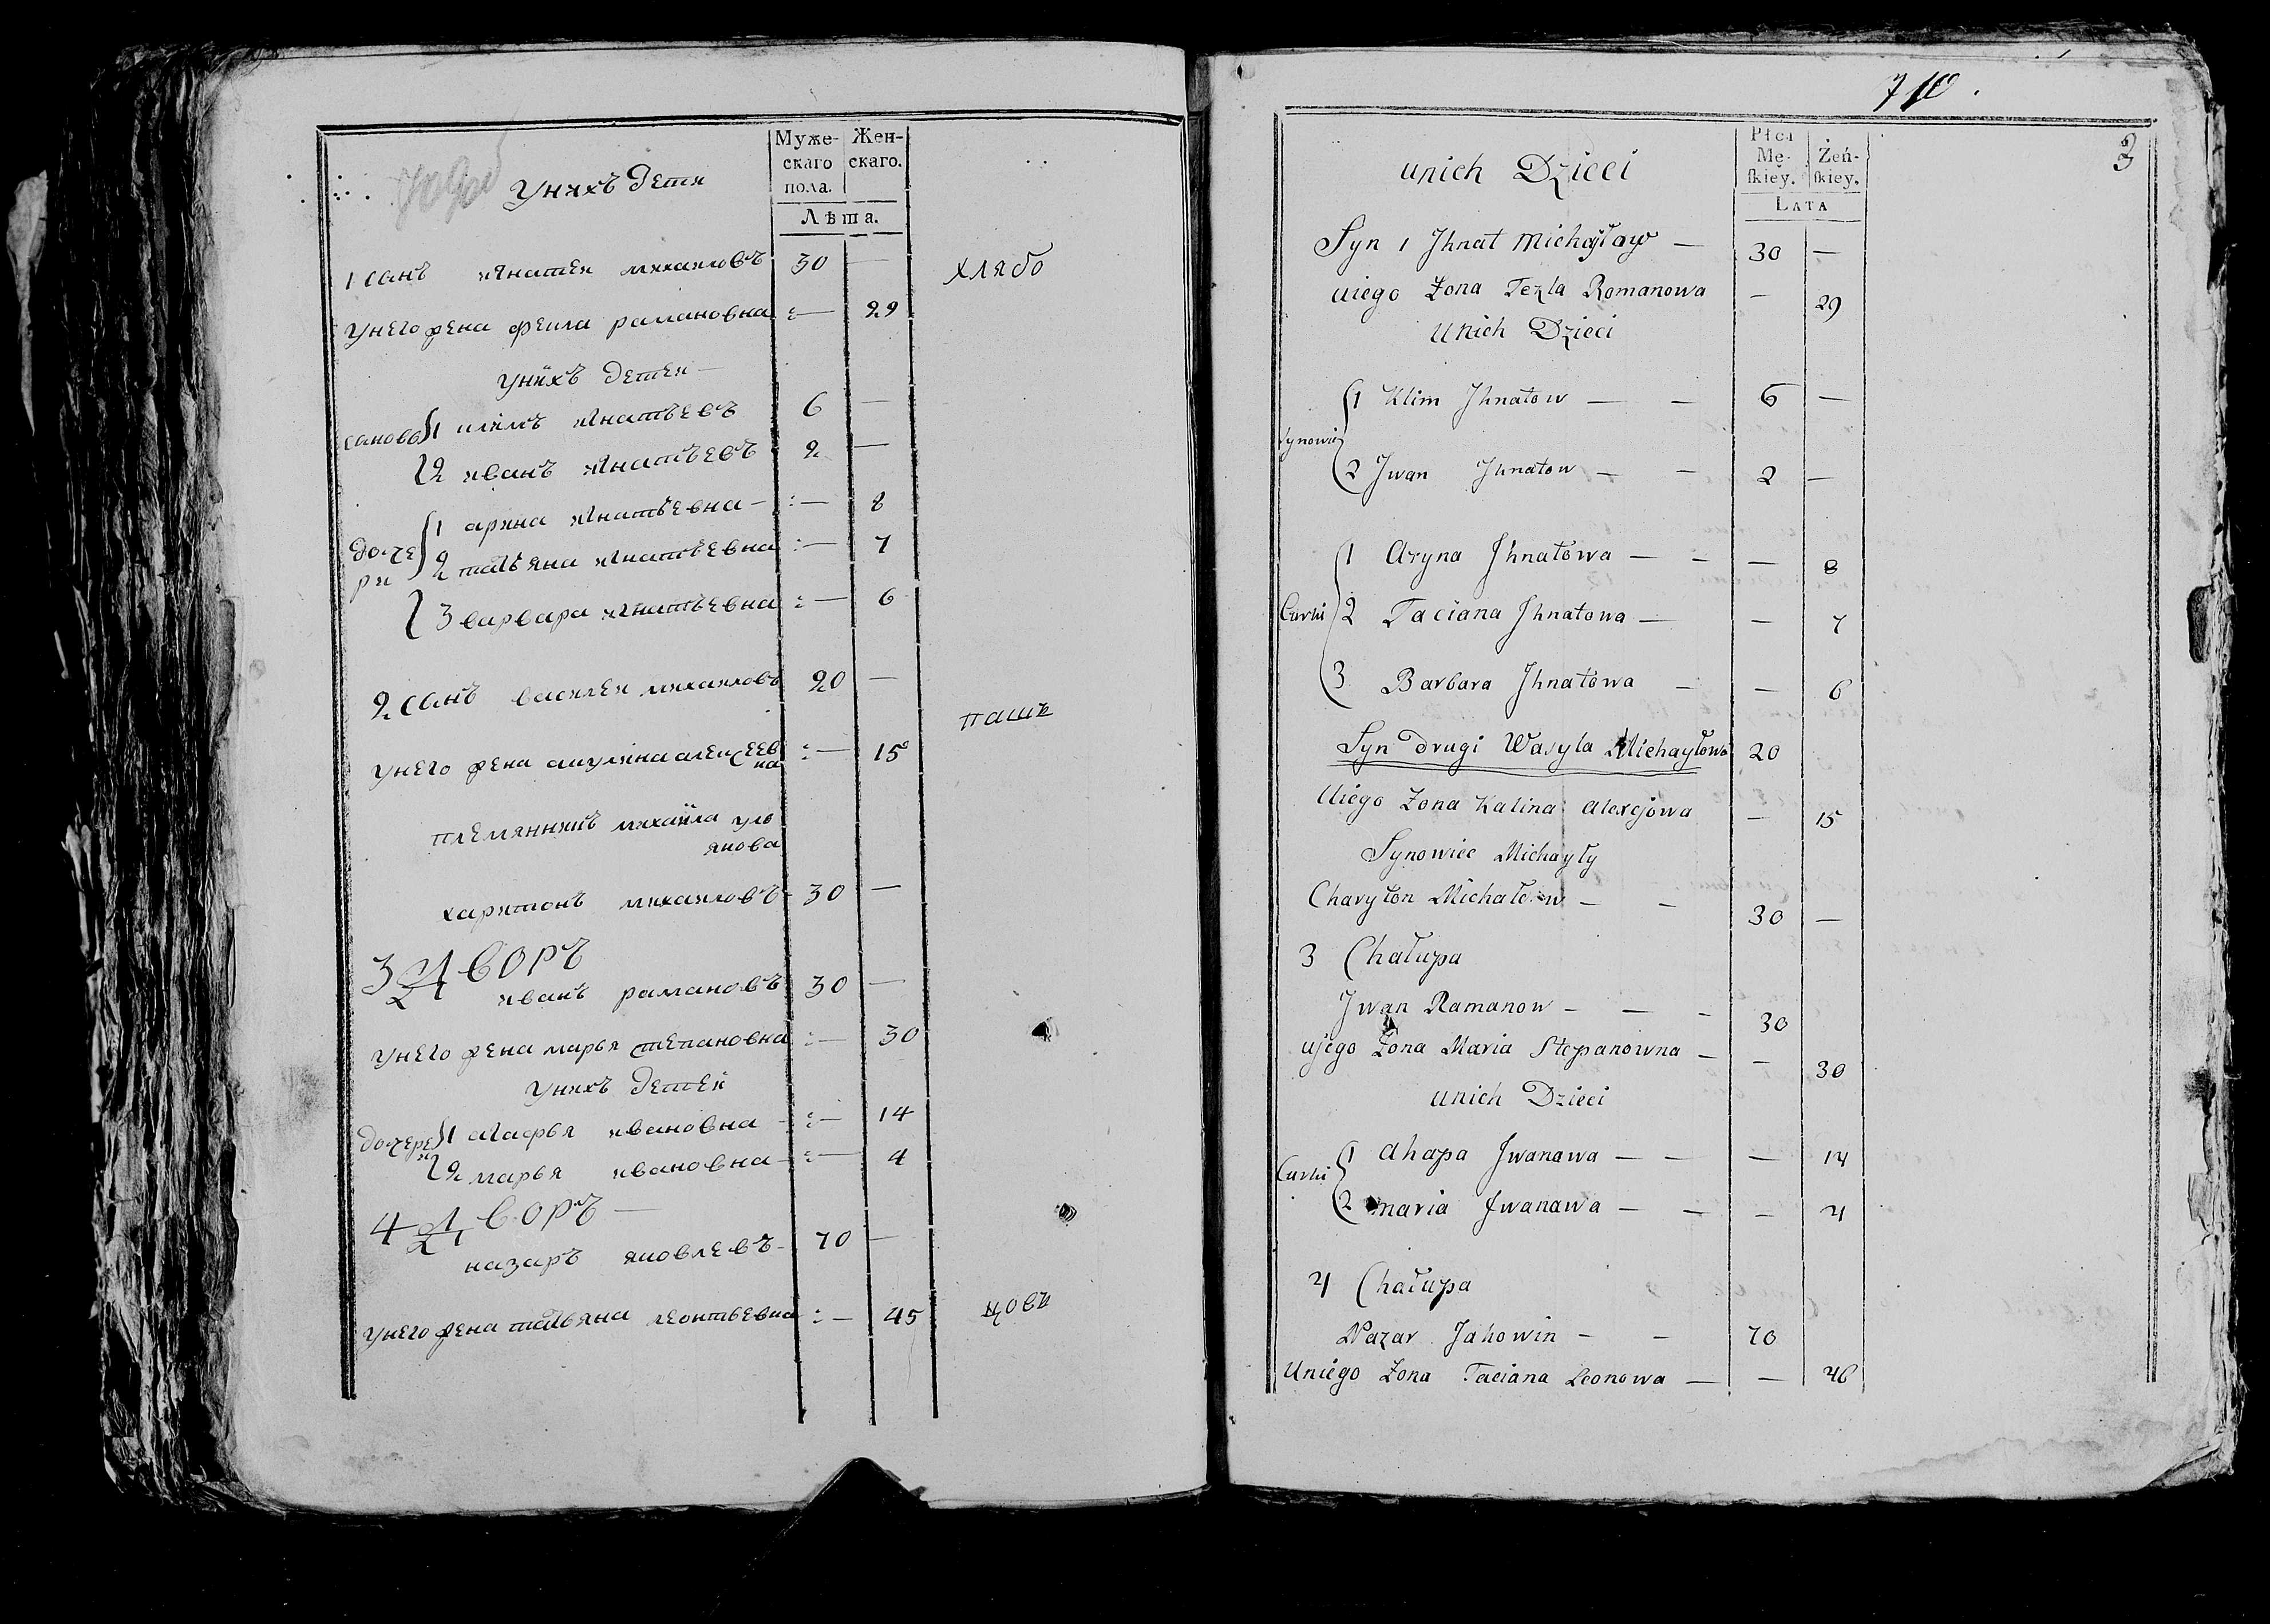 Муже-
скаго
пола.
Жен-
скаго.
Лѣта.
унихъ дети
1 санъ игнатеи михаиловъ 30 —
хлябо
унего жена фекла рамановна — 29
унихъ детеи —
санове 1 климъ игнатьевъ 6 —
2 иванъ игнатьевъ 2 —
дочери 1 арина игнатьевна — — 8
2 татьяна игнатьевна — 7
3 варвара игнатьевна — 6
2 санъ василеи михаиловъ 20 —
пашъ
унего жена акулина алексеевна — 15
племянникъ михаила улья
янова
харитонъ михаиловъ 30 —
3 Дворъ
иванъ рамановъ 30 —
унего жена марья степановна — 30
унихъ детей
дочери 1 агафья ивановна — 14
2 марья ивановна — 4
4 Дворъ —
назаръ яковлевъ 70 —
унего жена татьяна леонтьевна — 45
цовъ
710.
3
Płci
Mę-
skiey.
Żeń-
skiey.
LATA
unich Dzieci
Syn 1 Jhnat Michayłow — 30 —
uiego Żona Tezla Romanowa — 29
unich Dzieci
Synowie 1 Klim Jhnatow — — 6 —
2 Jwan Jhnatow — — 2 —
Curki 1 Aryna Jhnatowa — — — 8
2 Taciana Jhnatowa — — 7
3 Barbara Jhnatowa — — 6
Syn drugi Wasyla Michayłowa 20
Uiego Żona Kalina Alexejowa — 15
Synowiec Michayły
Charyton Michałow — — 30 —
3 Chałupa
Jwan Ramanow — — — 30
ujego Żona Maria Stepanowna — — 30
unich Dzieci
Curki 1 Ahapa Jwanawa — — — 14
2 maria Jwanawa — — — 4
4 Chałupa
Nazar Jakowin — — 70
Uniego Żona Taciana Leonowa — — 46